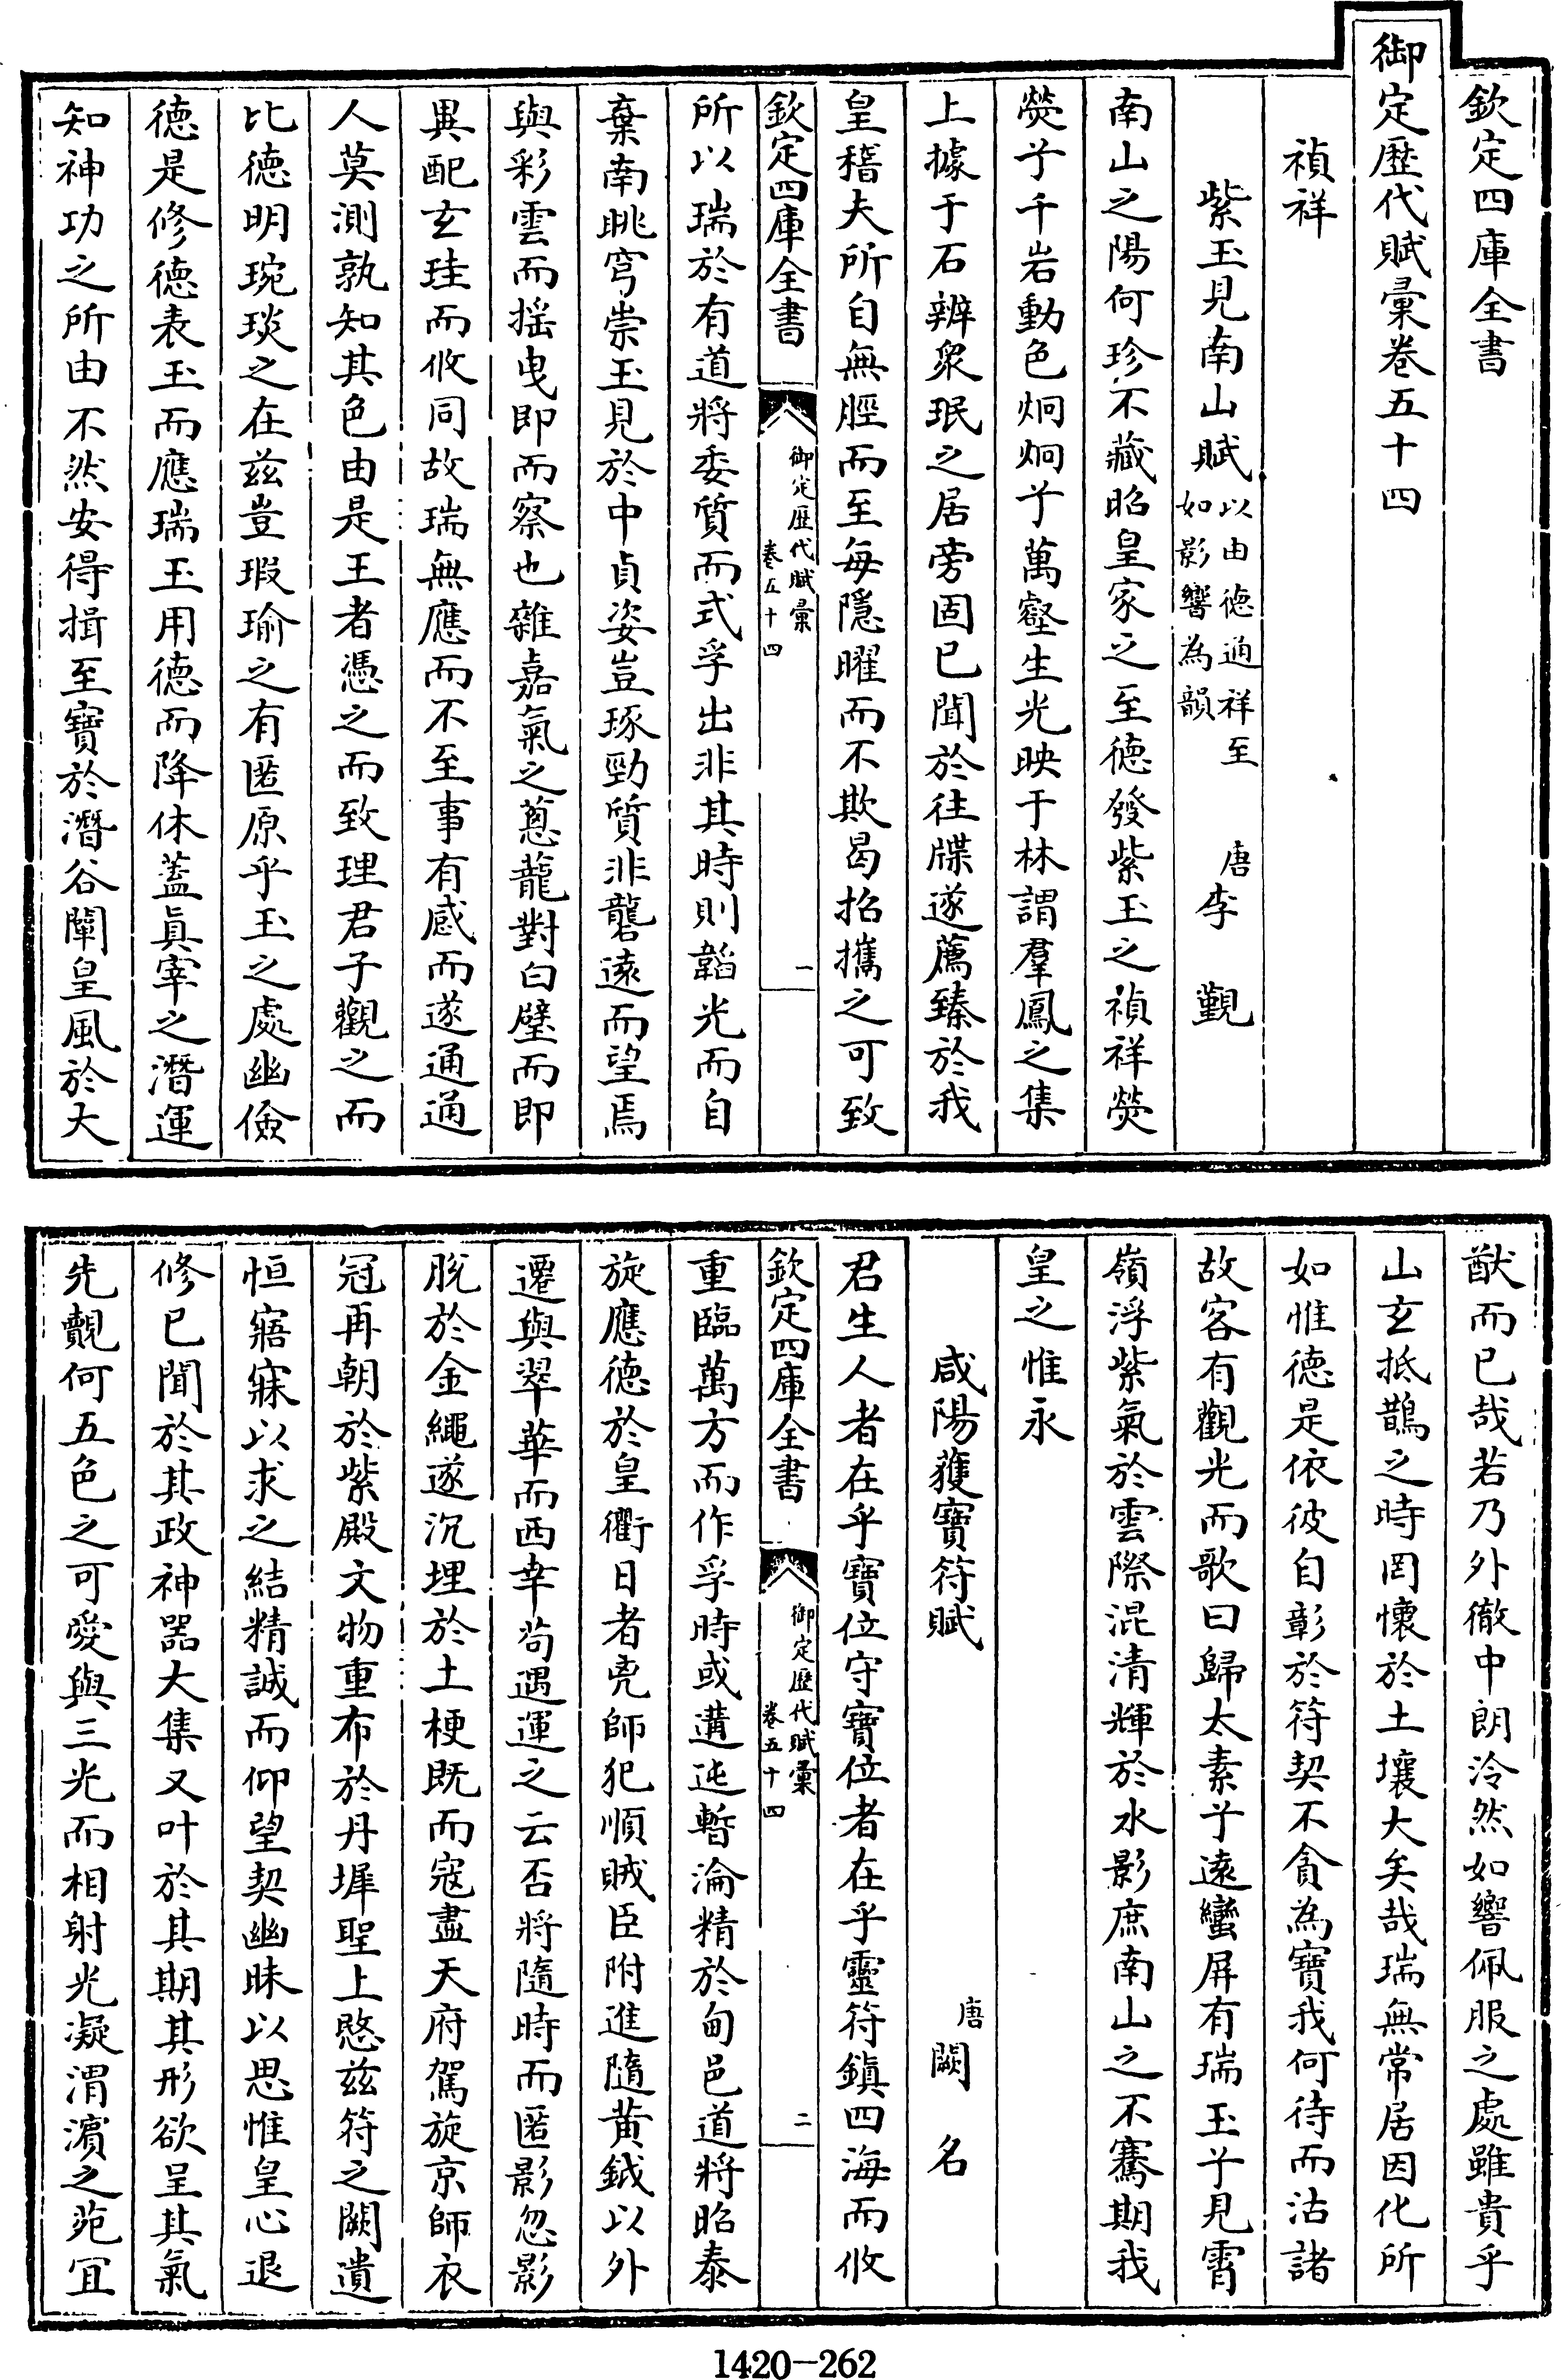 欽定四庫全書
御定歷代賦彙卷五十四
禎祥
紫玉見南山賦以由德通祥至如影響為韻 唐李覲
南山之陽何珍不藏昭皇家之至德發紫玉之禎祥熒
熒兮千岩動色炯炯兮萬壑生光映于林謂羣鳳之集
上據于石辨衆珉之居旁固已聞於往牒遂薦臻於我
皇稽夫所自無脛而至每隱曜而不欺曷招攜之可致
欽定四庫全書 御定歷代賦彙卷五十四 一
所以瑞於有道將委質而式孚出非其時則韜光而自
棄南眺穹崇玉見於中貞姿豈琢勁質非礱遠而望焉
與彩雲而搖曳即而察也雜嘉氣之蔥蘢對白璧而即
異配玄珪而攸同故瑞無應而不至事有感而遂通通
人莫測孰知其色由是王者憑之而致理君子觀之而
比德明琬琰之在茲豈瑕瑜之有匿原乎玉之處幽儉
德是修德表玉而應瑞玉用德而降休蓋眞宰之潛運
知神功之所由不然安得揖至寶於潛谷闡皇風於大
猷而已哉若乃外徹中朗泠然如響佩服之處雖貴乎
山玄抵鵲之時罔懷於土壤大矣哉瑞無常居因化所
如惟德是依彼自彰於符契不貪為寶我何待而沽諸
故客有觀光而歌曰歸太素兮遠蠻屏有瑞玉兮見霄
嶺浮紫氣於雲際混清輝於水影庶南山之不騫期我
皇之惟永
咸陽獲寶符賦 唐闕名
君生人者在乎寶位守寶位者在乎靈符鎮四海而攸
欽定四庫全書 御定歷代賦彙卷五十四 二
重臨萬方而作孚時或遘迍暫淪精於甸邑道將昭泰
旋應德於皇衢日者兇師犯順賊臣附進隨黃鉞以外
遷與翠華而西幸苟遇運之云否將隨時而匿影忽影
脫於金繩遂沉埋於土梗既而寇盡天府駕旋京師衣
冠再朝於紫殿文物重布於丹墀聖上愍茲符之闕遺
恒寤寐以求之結精誠而仰望契幽昧以思惟皇心退
修已聞於其政神器大集又叶於其期其形欲呈其氣
先覿何五色之可愛與三光而相射光凝渭濱之苑宜
1420—262